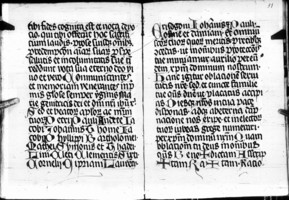 tibi fides cognita est et nota devo
tio qui tibi offerunt hoc sacrifi
cium laudis pro se suisque omnibus
pro redemptione animarum suarum pro spe
salutis et incolumitatis sue tibi
reddunt vota sua eterno deo vi
vo et vero Communicantes
et memoriam venerantes in pri
mis gloriose semper virginis Ma
rie genitricis dei et domini nostri
Sed et beatorum apostolorum ac mar
tirum Petri Pauli Andree Ia
cobi Iohannis Thome Ia
cobi Philippi Bartholomei
Mathei Symonis et Thadei
Lini Cleti Clementis Sixti
Cornelii Cipriani Laurencii
Grisogoni Iohannis et Pauli
Cosme et Damiani et omnium
sanctorum tuorum quorum meritis precibusque
concedas ut in omnibus protectionis
tue muniamur auxilio per eundem
christum dominum nostrum
Hanc igitur oblationem servi
tutis nostre sed et cuncte familie
tue quesumus domine ut placatus accipi
as diesque nostros in tua pace
disponas atque ab eterna dam
pnatione nos eripi et in electorum
tuorum iubeas grege numerari
per christum dominum nostrum Quam
oblationem tu deus in omnibus
quesumus bene+dictam ascrip
+tam ra+tam rationa